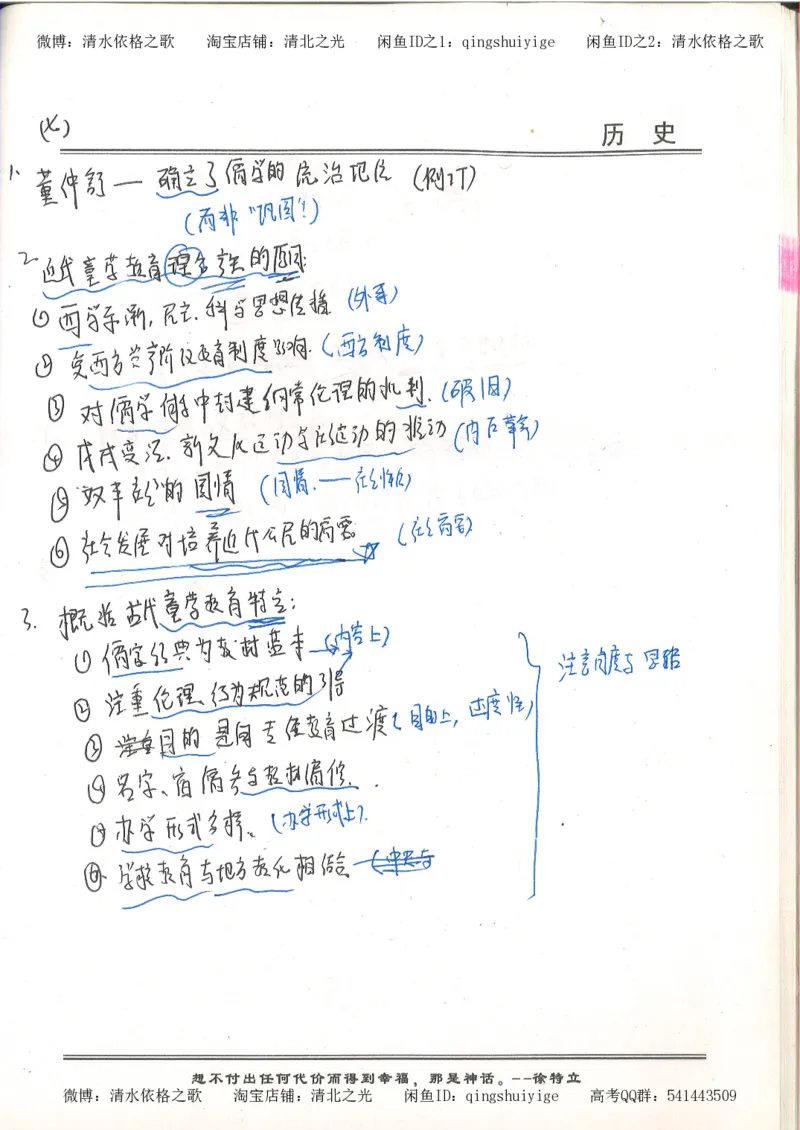 微博：清水依格之歌 淘宝店铺：清北之光 闲鱼ID之1：qingshuiyige 闲鱼ID之2：清水依格之歌
(七)
历 史
1、董仲舒 — 确立了儒学的统治地位 (例订)
(而非"巩固"！)
2 近代童学教育理念变的原因：
① 西学东渐，民主、科学思想传播 (外来)
② 受西方资产阶级教育制度影响. (西方制度)
③ 对儒学体系中封建纲常伦理的批判. (破旧)
④ 戊戌变法、新文化运动等运动的推动 (内因革命)
⑤ 变革社会的国情 (国情. — 社会性质)
⑥ 社会发展对培养近代公民的需要 (社会需要)
3. 概括古代童学教育特点：
① 儒家经典为教材蓝本 (内容上)
② 注重伦理、行为规范的引导
③ 目的是向专经教育过渡 (目的上，过度性)
④ 名宇、宿儒参与教材编修.
⑤ 办学形式多样、(办学形式上).
⑥ 学校教育与地方教化相结合
注意角度与思路
想不付出任何代价而得到幸福，那是神话。--徐特立
微博：清水依格之歌 淘宝店铺：清北之光 闲鱼ID：qingshuiyige 高考QQ群：541443509